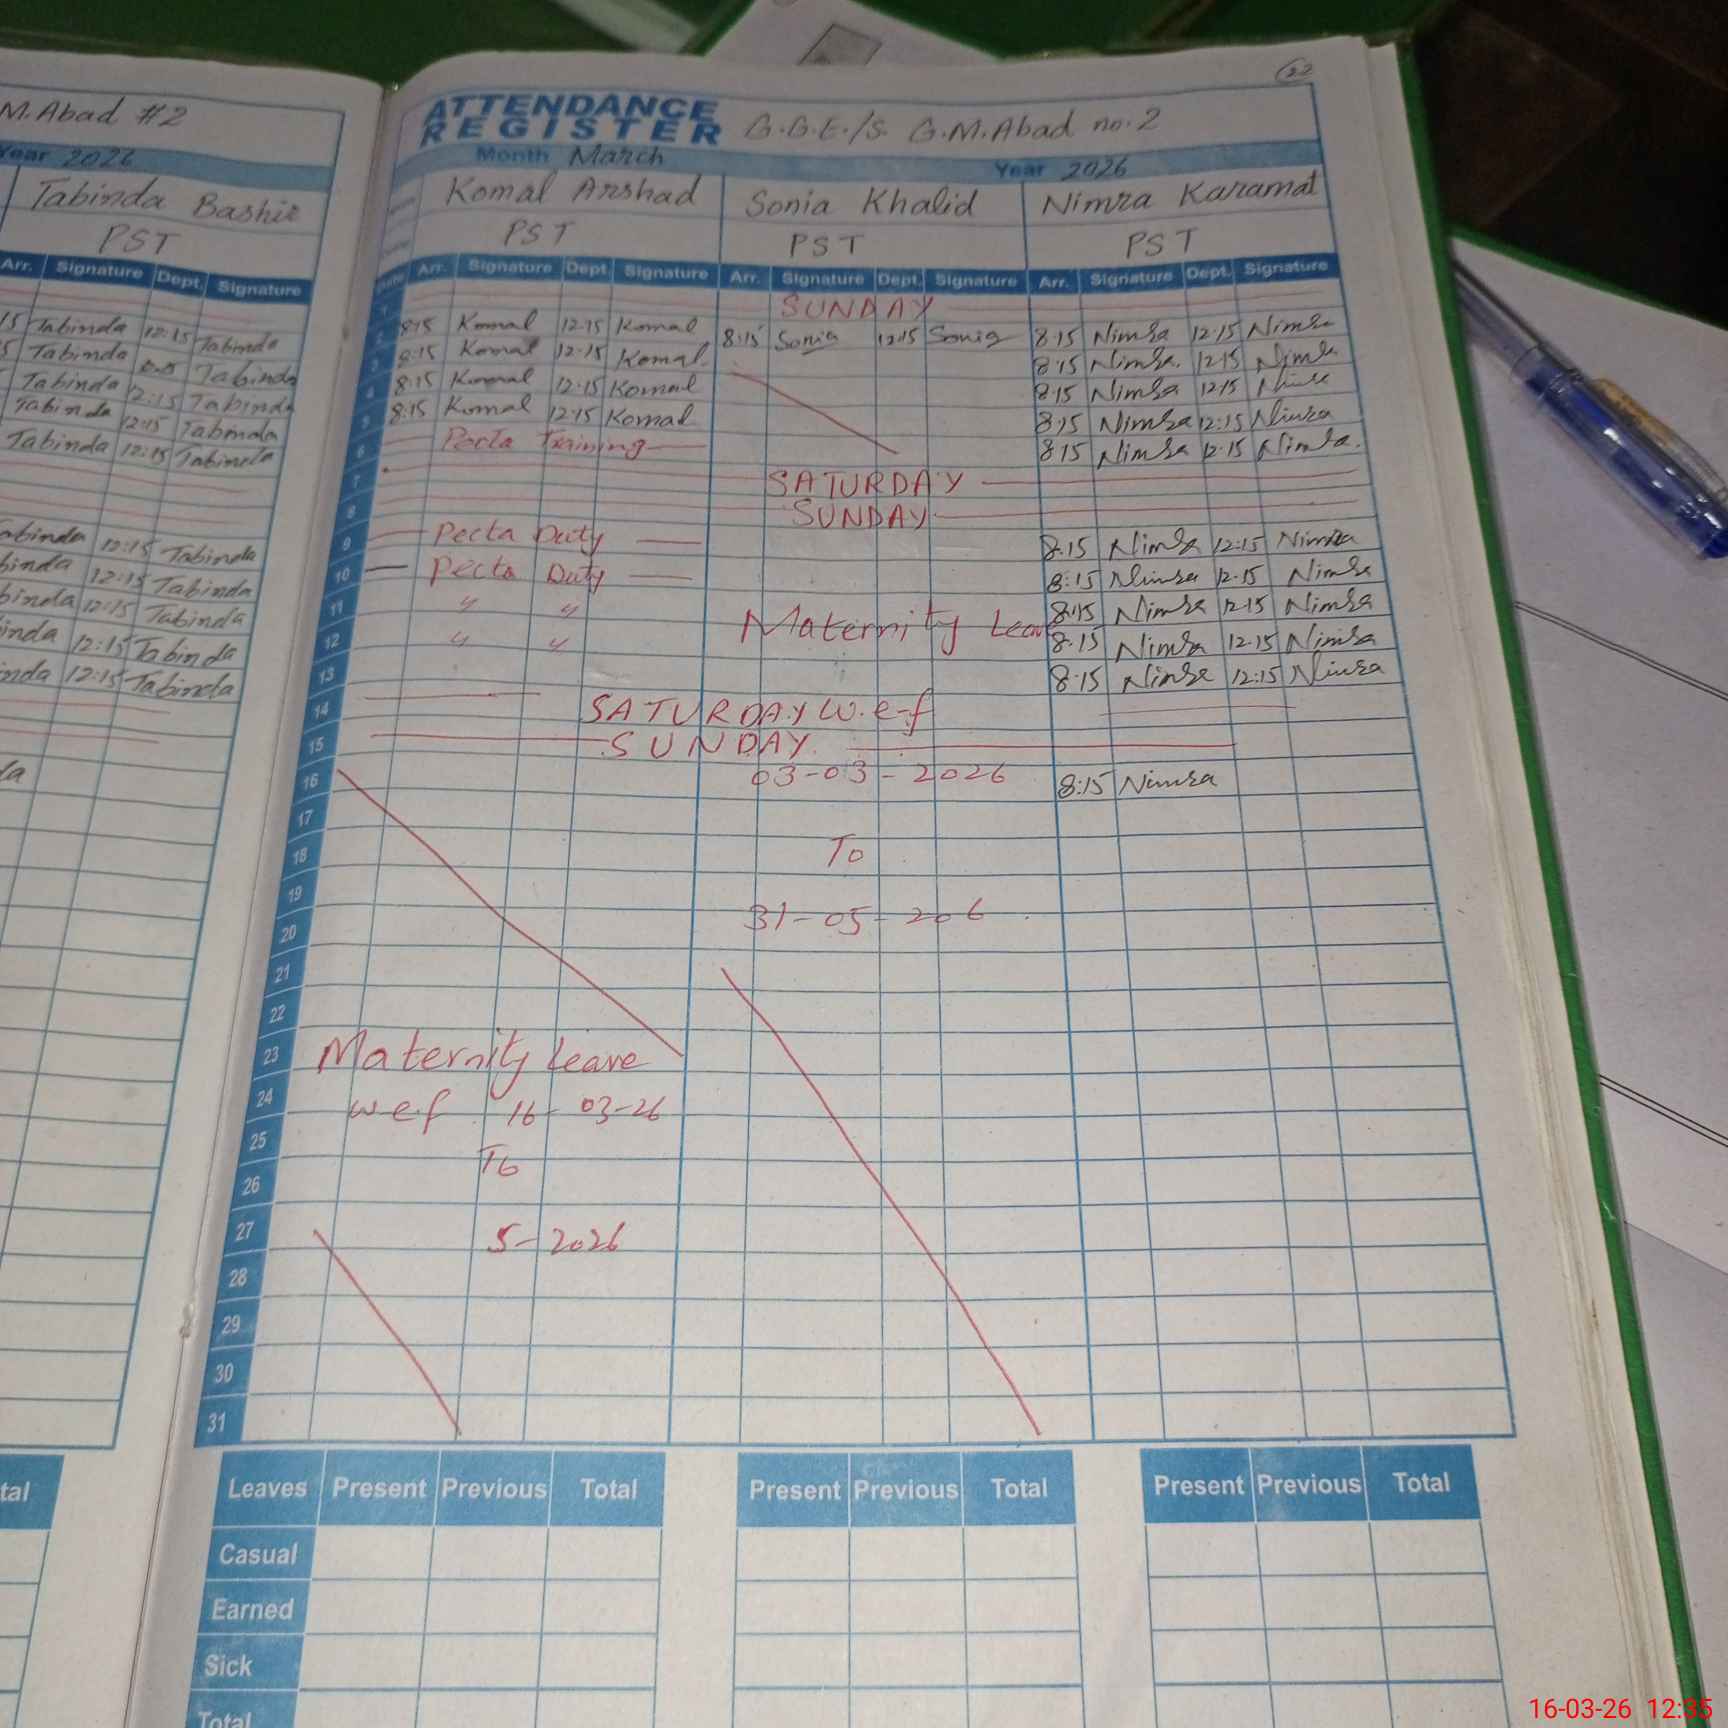 M. Abad #2
Year 2026
Tabinda Bashir
PST
Arr. Signature Dept. Signature
15 Tabinda 12:15 Tabinda
5 Tabinda Tabinda
Tabinda 12:15 Tabinda
Tabinda 12:15 Tabinda
Tabinda 12:15 Tabinda
abinda 12:15 Tabinda
binda 12:15 Tabinda
binda 12:15 Tabinda
inda 12:15 Tabinda
nda 12:15 Tabinda
da
tal
22
ATTENDANCE
REGISTER G.G.E./S. G.M.Abad no.2
Month March Year 2026
Komal Arshad Sonia Khalid Nimra Karamat
PST PST PST
Arr. Signature Dept. Signature Arr. Signature Dept. Signature Arr. Signature Dept. Signature
1 SUNDAY
2 8:15 Komal 12:15 Komal 8:15 Sonia 12:15 Sonia 8:15 Nimra 12:15 Nimra
3 8:15 Komal 12:15 Komal 8:15 Nimra 12:15 Nimra
4 8:15 Komal 12:15 Komal 8:15 Nimra 12:15 Nimra
5 8:15 Komal 12:15 Komal 8:15 Nimra 12:15 Nimra
6 Pecta Training 8:15 Nimra 12:15 Nimra
7 SATURDAY
8 SUNDAY
9 Pecta Duty 8:15 Nimra 12:15 Nimra
10 Pecta Duty 8:15 Nimra 12:15 Nimra
11 " " Maternity Leave 8:15 Nimra 12:15 Nimra
12 " " 8:15 Nimra 12:15 Nimra
13 8:15 Nimra 12:15 Nimra
14 SATURDAY w.e.f
15 SUNDAY
16 03-03-2026 8:15 Nimra
17
18 To
19
20 31-05-206
21
22
23 Maternity Leave
24 w.e.f 16-03-26
25
26 To
27 5-2026
28
29
30
31
Leaves Present Previous Total Present Previous Total Present Previous Total
Casual
Earned
Sick
Total
16-03-26 12:35